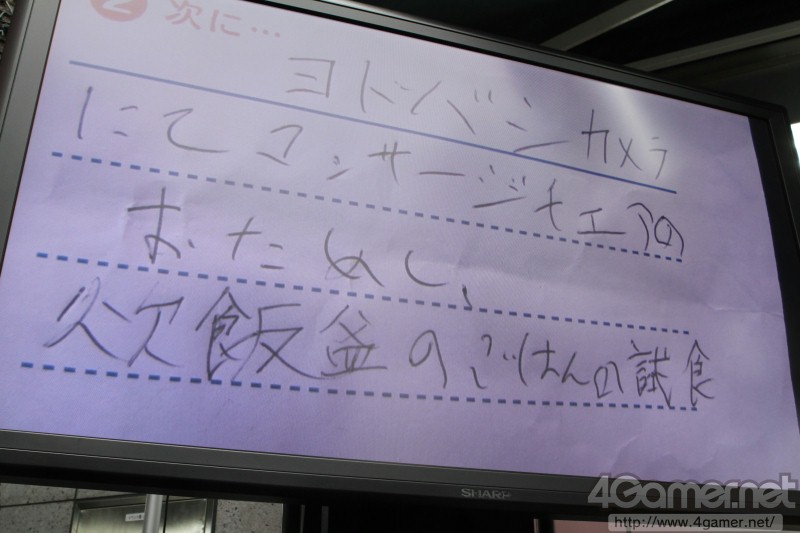 2 次に…
ヨドバシカメラ
にてマッサージチェアの
おためし、
炊飯釜のごはんの試食
SHARP
4Gamer.net
http://www.4gamer.net/